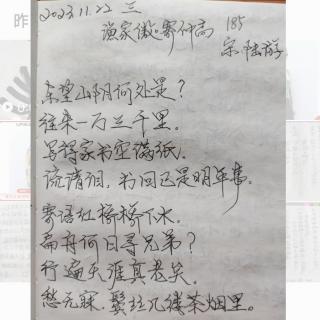 2023.11.22 三
渔家傲·寄仲高 185
宋·陆游
东望山阴何处是？
往来一万三千里。
写得家书空满纸。
流清泪，书回已是明年事。
寄语红桥桥下水。
扁舟何日寻兄弟？
行遍天涯真老矣。
愁无寐，鬓丝几缕茶烟里。
昨